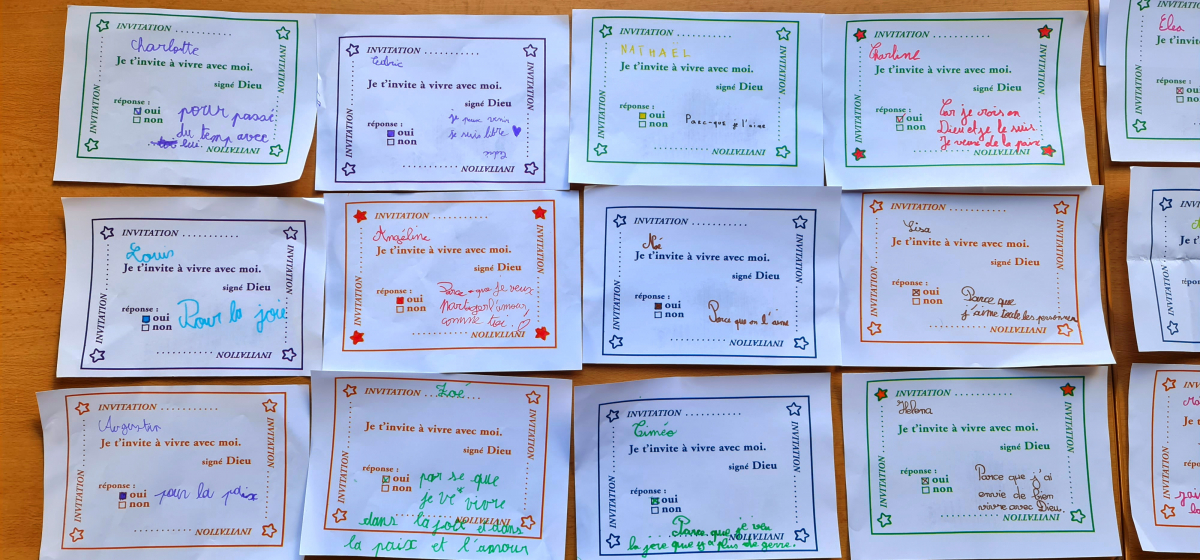 INVITATION ...........
Charlotte
Je t'invite à vivre avec moi.
signé Dieu
réponse :
oui
non
pour passé
du temp avec
lui.
INVITATION
INVITATION
INVITATION
INVITATION ...........
Cédric
Je t'invite à vivre avec moi.
signé Dieu
réponse :
oui
non
je peux venir
je suis libre
INVITATION
INVITATION
INVITATION
INVITATION ...........
NATHAEL
Je t'invite à vivre avec moi.
signé Dieu
réponse :
oui
non
Parc-que je l'aime
INVITATION
INVITATION
INVITATION
INVITATION ...........
Charline
Je t'invite à vivre avec moi.
signé Dieu
réponse :
oui
non
Car je crois en
Dieu et je le suis
Je veux de la paix
INVITATION
INVITATION
INVITATION
Elea
Je t'invite
réponse :
oui
non
INVITATION
INVITATION ...........
Louis
Je t'invite à vivre avec moi.
signé Dieu
réponse :
oui
non
Pour la joie
INVITATION
INVITATION
INVITATION
INVITATION ...........
Angéline
Je t'invite à vivre avec moi.
signé Dieu
réponse :
oui
non
Parce-que je veux
partager l'amour,
comme toi.
INVITATION
INVITATION
INVITATION
INVITATION ...........
Noé
Je t'invite à vivre avec moi.
signé Dieu
réponse :
oui
non
Parce que on l'aime
INVITATION
INVITATION
INVITATION
INVITATION ...........
Lisa
Je t'invite à vivre avec moi.
signé Dieu
réponse :
oui
non
Parce que
j'aime toute les personnes
INVITATION
INVITATION
INVITATION
réponse
oui
non
INVITATION ...........
Augustin
Je t'invite à vivre avec moi.
signé Dieu
réponse :
oui
non
pour la paix
INVITATION
INVITATION
INVITATION
INVITATION ...
Zoé
Je t'invite à vivre avec moi.
signé Dieu
réponse :
oui
non
par se que
je ve vivre
dans la joit et dans
la paix et l'amour
INVITATION
INVITATION
INVITATION
INVITATION ...........
Timéo
Je t'invite à vivre avec moi.
signé Dieu
réponse :
oui
non
Parce que je veu
la joie que y a plus de gerre.
INVITATION
INVITATION
INVITATION
INVITATION ...........
Helena
Je t'invite à vivre avec moi.
signé Dieu
réponse :
oui
non
Parce que j'ai
envie de bien
vivre avec Dieu.
INVITATION
INVITATION
INVITATION
Je t'inv
réponse
oui
non